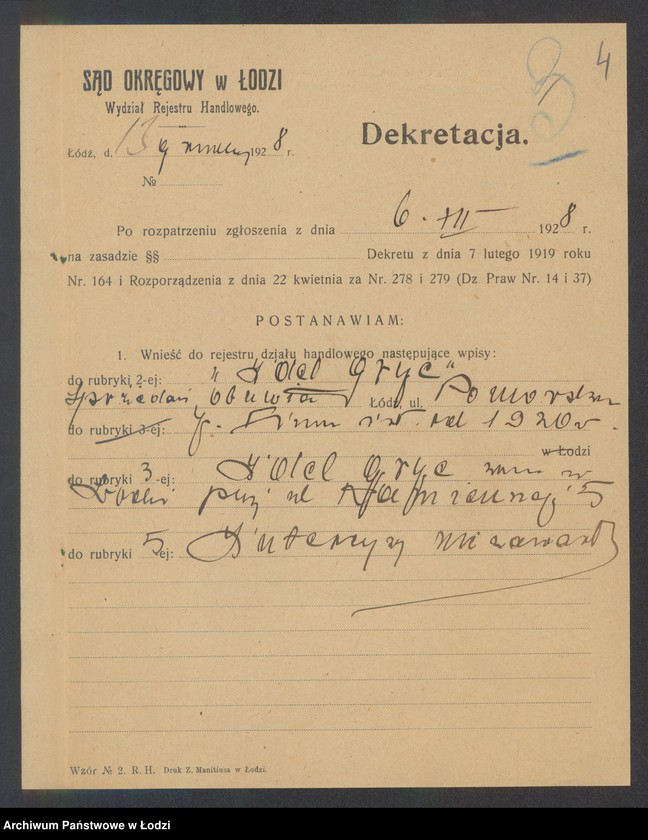 4
SĄD OKRĘGOWY w ŁODZI
Wydział Rejestru Handlowego.
Dekretacja.
Łódź, d. 13 1928 r.
№
Po rozpatrzeniu zgłoszenia z dnia 6. XII 1928 r.
na zasadzie §§ Dekretu z dnia 7 lutego 1919 roku
Nr. 164 i Rozporządzenia z dnia 22 kwietnia za Nr. 278 i 279 (Dz Praw Nr. 14 i 37)
POSTANAWIAM:
1. Wnieść do rejestru działu handlowego następujące wpisy:
do rubryki 2-ej: Gryc"
obuwia Łódź, ul. Pomorska
do rubryki 3-ej: 7. Firma istn. od 1920 r.
w Łodzi
do rubryki 3-ej: Gryc zam w
Łodzi przy ul Kamiennej 5
do rubryki 5 ej: Intercyzy nie zawarł
Wzór № 2. R. H. Druk Z. Manitiusa w Łodzi.
Archiwum Państwowe w Łodzi